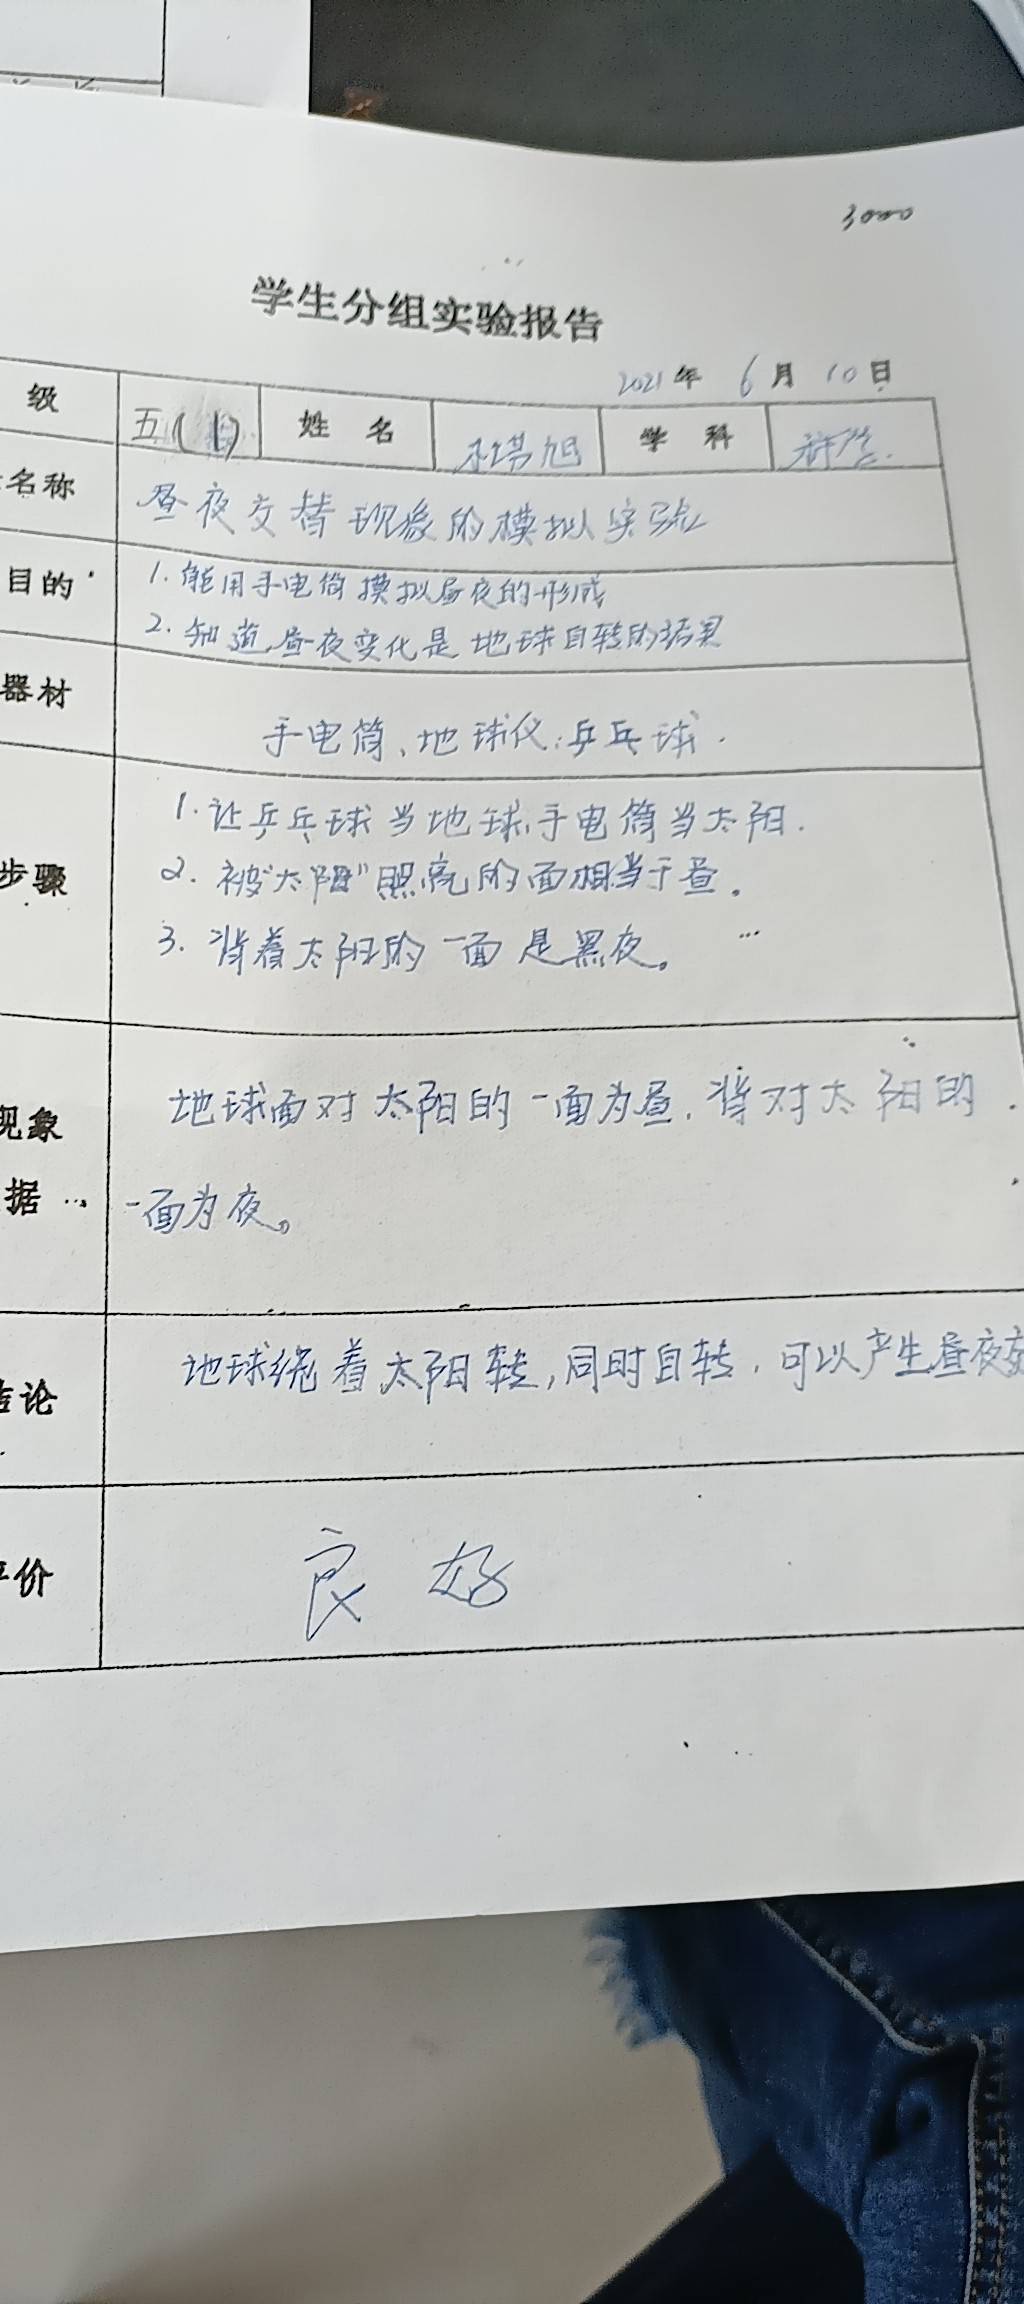 3000
学生分组实验报告
2021年 6月 10日
级 五(1) 姓 名 旭 学 科 科学
名称 昼夜交替现象的模拟实验
目的 1.能用手电筒摸拟昼夜的形成
2.知道昼夜变化是地球自转的结果
器材 手电筒、地球仪、乒乓球.
1.让乒乓球当地球,手电筒当太阳.
步骤 2.被“太阳”照亮的面相当于昼。
3.背着太阳的一面是黑夜。
现象 地球面对太阳的一面为昼,背对太阳的
据 一面为夜。
结论 地球绕着太阳转,同时自转,可以产生昼夜交
评价 良好